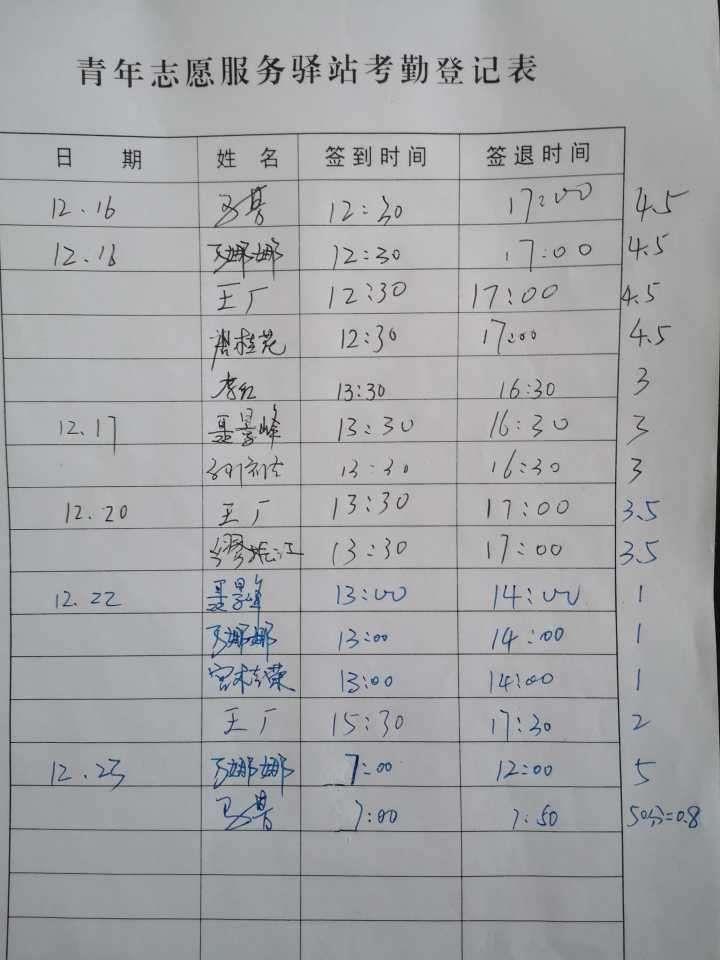 青年志愿服务驿站考勤登记表
日 期 姓 名 签到时间 签退时间
12.16 12:30 17:00 4.5
12.16 马娜娜 12:30 17:00 4.5
王厂 12:30 17:00 4.5
桂花 12:30 17:00 4.5
李红 13:30 16:30 3
12.17 聂景峰 13:30 16:30 3
13:30 16:30 3
12.20 王厂 13:30 17:00 3.5
缪 江 13:30 17:00 3.5
12.22 聂景峰 13:00 14:00 1
马娜娜 13:00 14:00 1
宫桂荣 13:00 14:00 1
王厂 15:30 17:30 2
12.23 马娜娜 7:00 12:00 5
7:00 7:50 50分=0.8